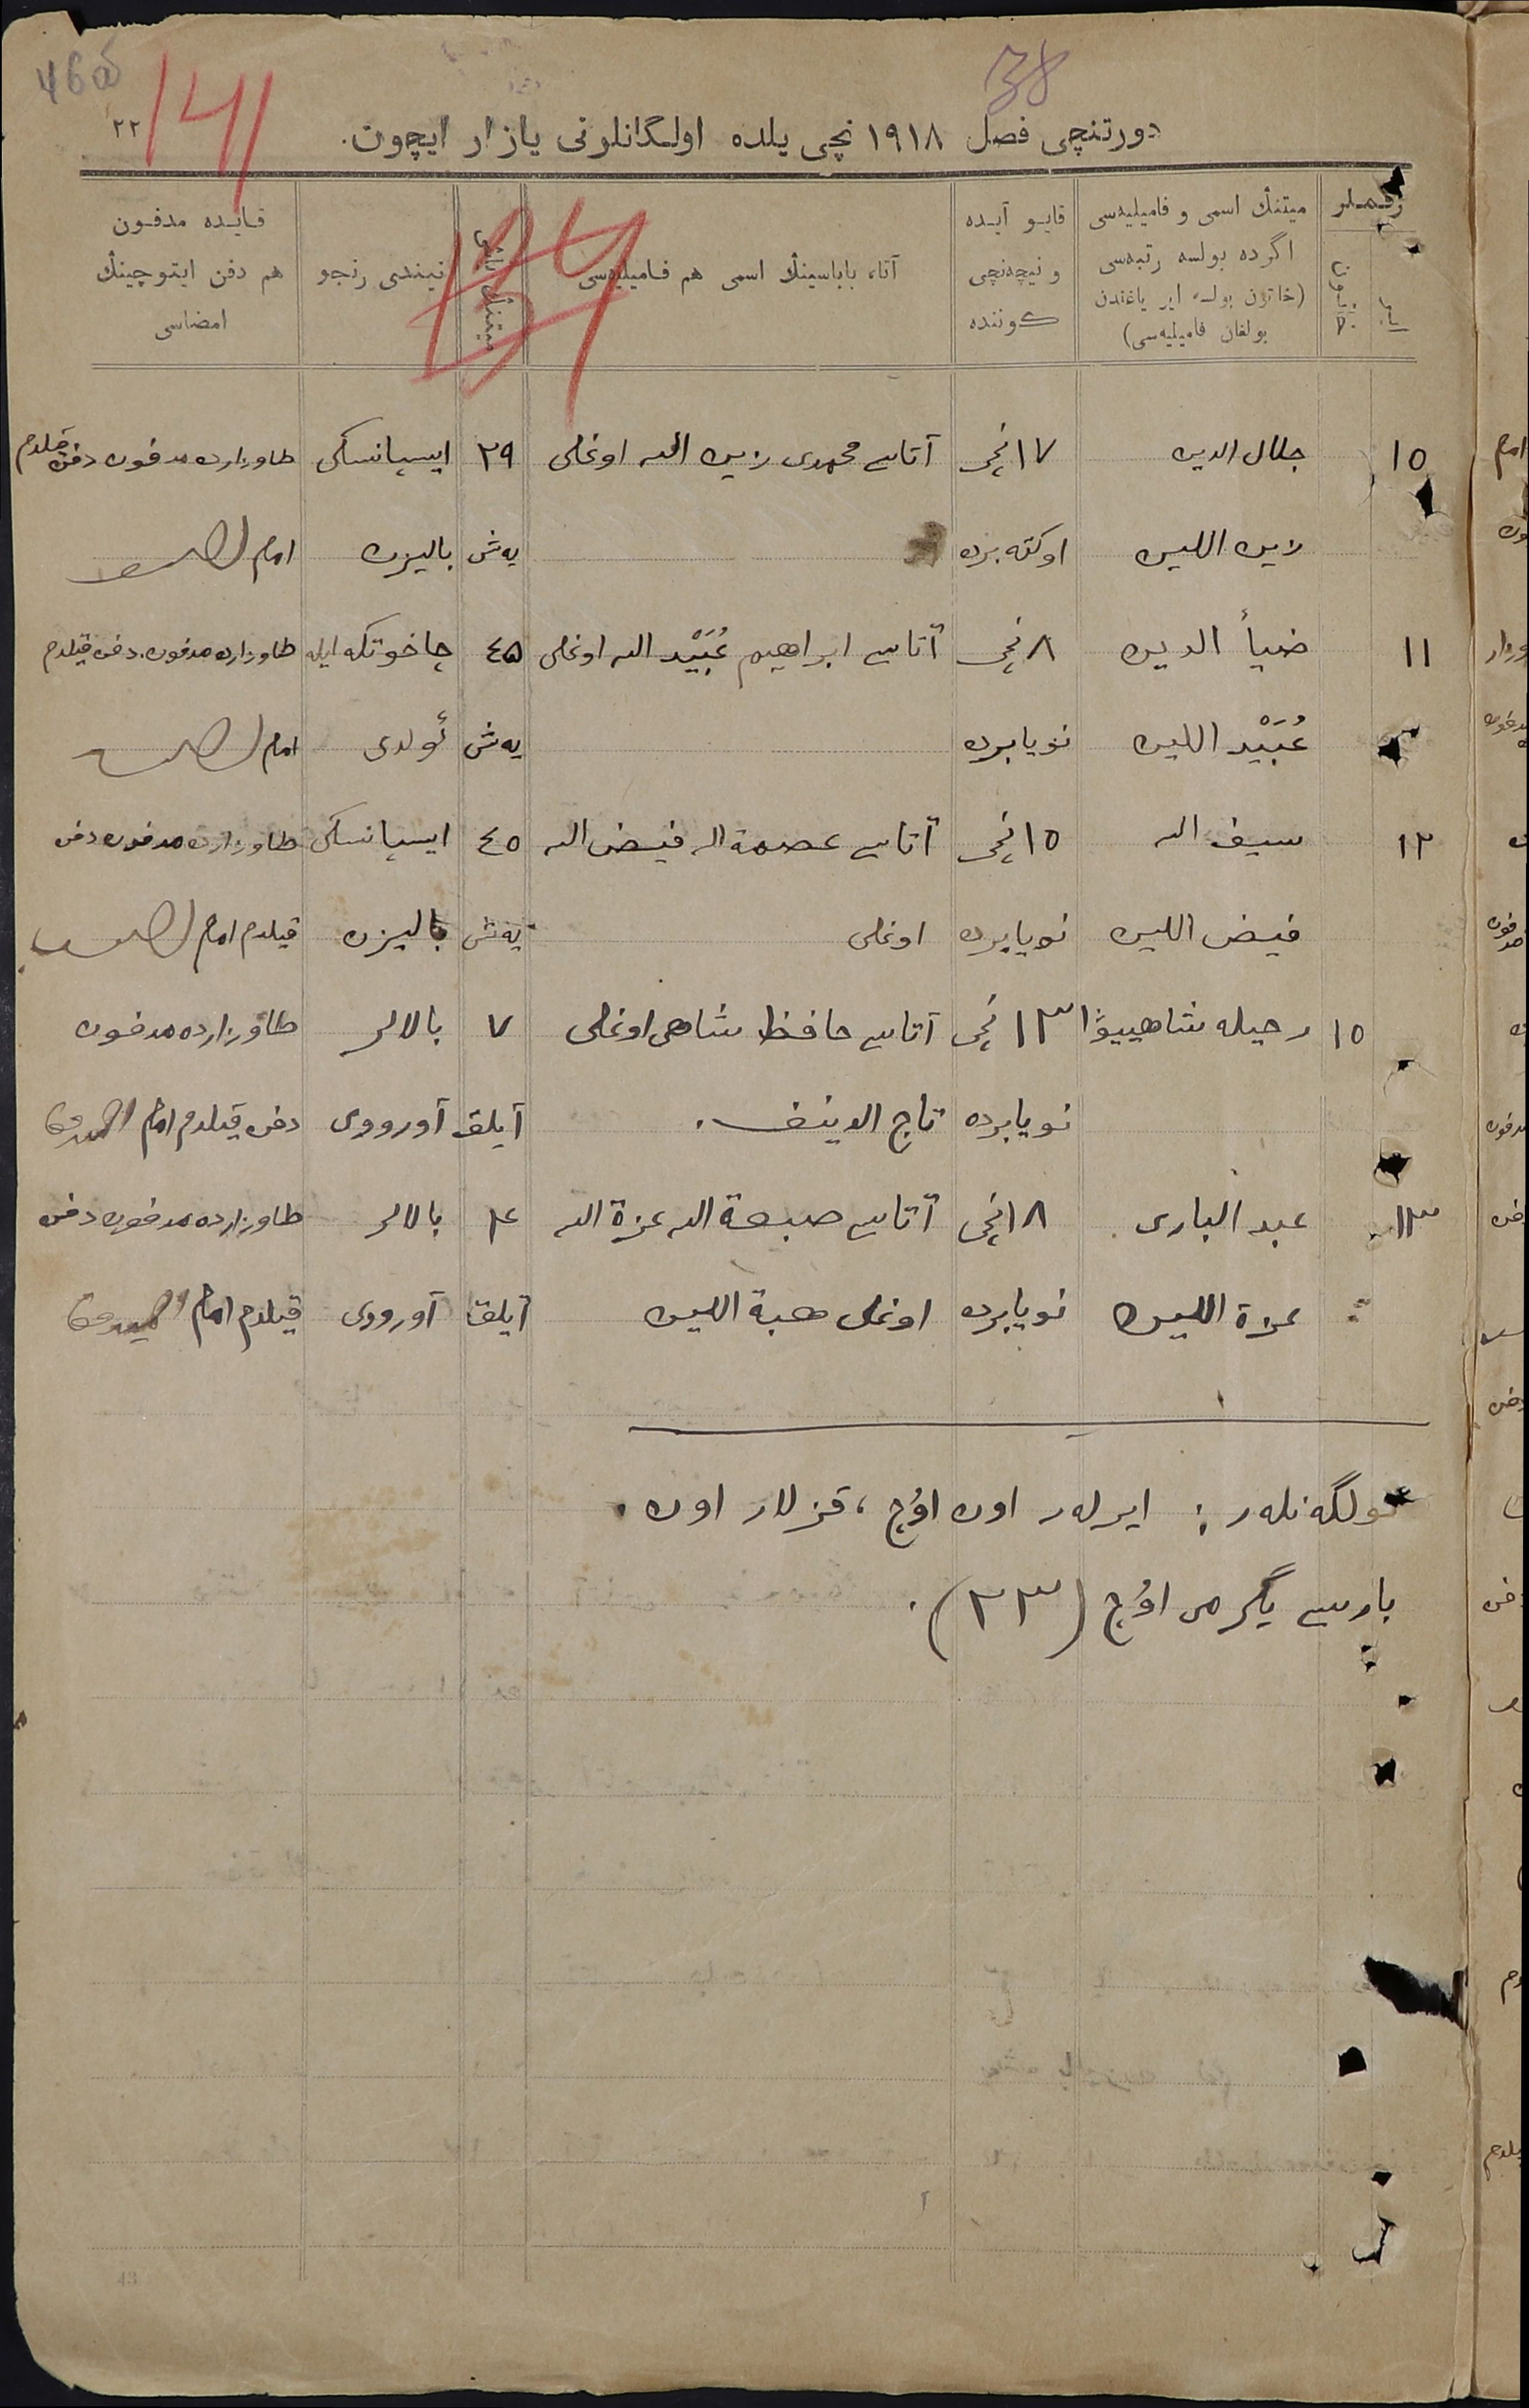 46об
38
141
134
٢٢
دورتنچى فصل ١٩١٨ نچى يلده اولـگانلرنى يازار ايچون.
رقـمـلر
ميتنڭ اسمى و فاميليه‌سى
اگر ده بولسه رتبه‌سى
(خاتون بولسه اير ياغندن
بولغان فاميليه‌سى)
قايـو آيـده
و نيچه‌نچى
كـوننده
آتا، باباسينڭ اسمى هم فـاميليه‌سى
نيندى رنجو
قـايـده مدفـون
هم دفن ايتوچينڭ
امضاسى
١٥ جلال الدين ١٧ نچى آتاسى محمدى زين الله اوغلى ٢٩ ايسپانسكى طاوزارده مدفون دفن قيلدم
زين اللين اوكتەبرده يەش باليزن امام
١١ ضيأ الدين ٨ نچى آتاسى ابراهيم عُبَيْد الله اوغلى ٤٥ چاخوتكه ايله طاوزارده مدفون. دفن قيلدم
عُبَيْد اللين نويابرده يەش ئولدى امام
١٢ سيف الله ١٥ نچى آتاسى عصمة الله فيض الله ٤٥ ايسپانسكى طاوزارده مدفون دفن
فيض اللين نويابرده اوغلى يەش باليزن قيلدم امام
١٥ رحيله شاهييوا ١٣ نچى آتاسى حافظ شاهى اوغلى ٧ بالالر طاوزارده مدفون
نويابرده تاج الدينف. آيلق آورووى دفن قيلدم امام
١٣ عبد البارى ١٨ نچى آتاسى صبعة الله عزة الله ٤ بالالر طاوزارده مدفون دفن
عزة اللين نويابرده اوغلى هبة اللين آيلق آورووى قيلدم امام
ئولگەنلەر: ايرلەر اون اوُچ، قزلار اون.
بارسى يگرمى اوُچ (٢٣).
43